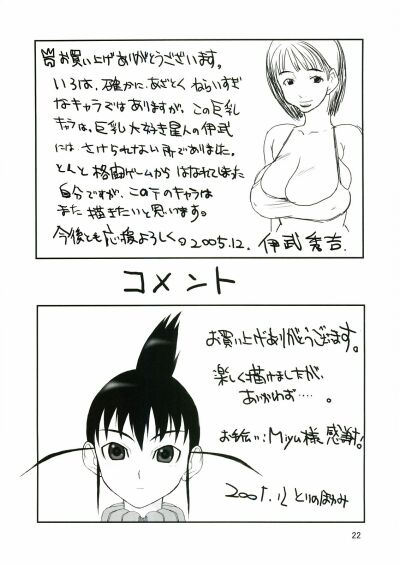 お買い上げありがとうございます。
いろは、確かにあざとくねらいすぎ
なキャラではありますが、この巨乳
キャラは、巨乳大好き星人の伊武
にはさけられない所でありました。
とんと格闘ゲームからはなれてしまった
自分ですが、このテのキャラは
また描きたいと思います。
今後とも応援よろしく。2005.12. 伊武秀吉.
コメント
お買い上げありがとうございます。
楽しく描けましたが、
あいかわらず……。
お手伝い:Miyu様感謝!
2005.12 とりのはかみ
22